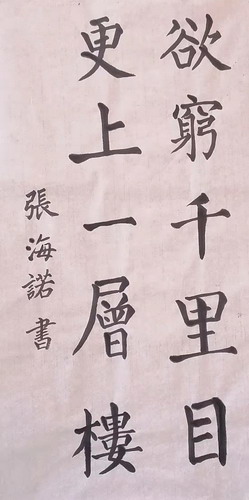 欲窮千里目
更上一層樓
張海諾書